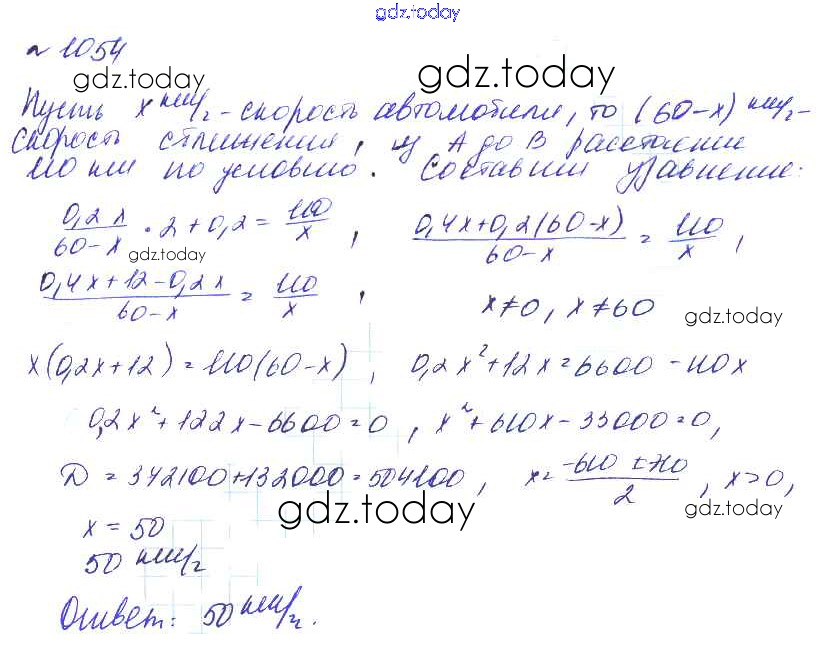 gdz.today
№ 1054
gdz.today gdz.today
Пусть x км/ч - скорость автомобиля, то (60-x) км/ч -
скорость сближения, из A до B расстояние
110 км по условию. Составим уравнение:
0,2x/(60-x) · 2 + 0,2 = 110/x , (0,4x+0,2(60-x))/(60-x) = 110/x ,
gdz.today
(0,4x+12-0,2x)/(60-x) = 110/x , x≠0, x≠60 gdz.today
x(0,2x+12) = 110(60-x) , 0,2x²+12x=6600-110x
0,2x²+122x-6600=0 , x²+610x-33000=0,
Д = 372100+132000=504100 , x=(-610±710)/2 , x>0,
gdz.today gdz.today
x = 50
50 км/ч
Ответ: 50 км/ч. gdz.today